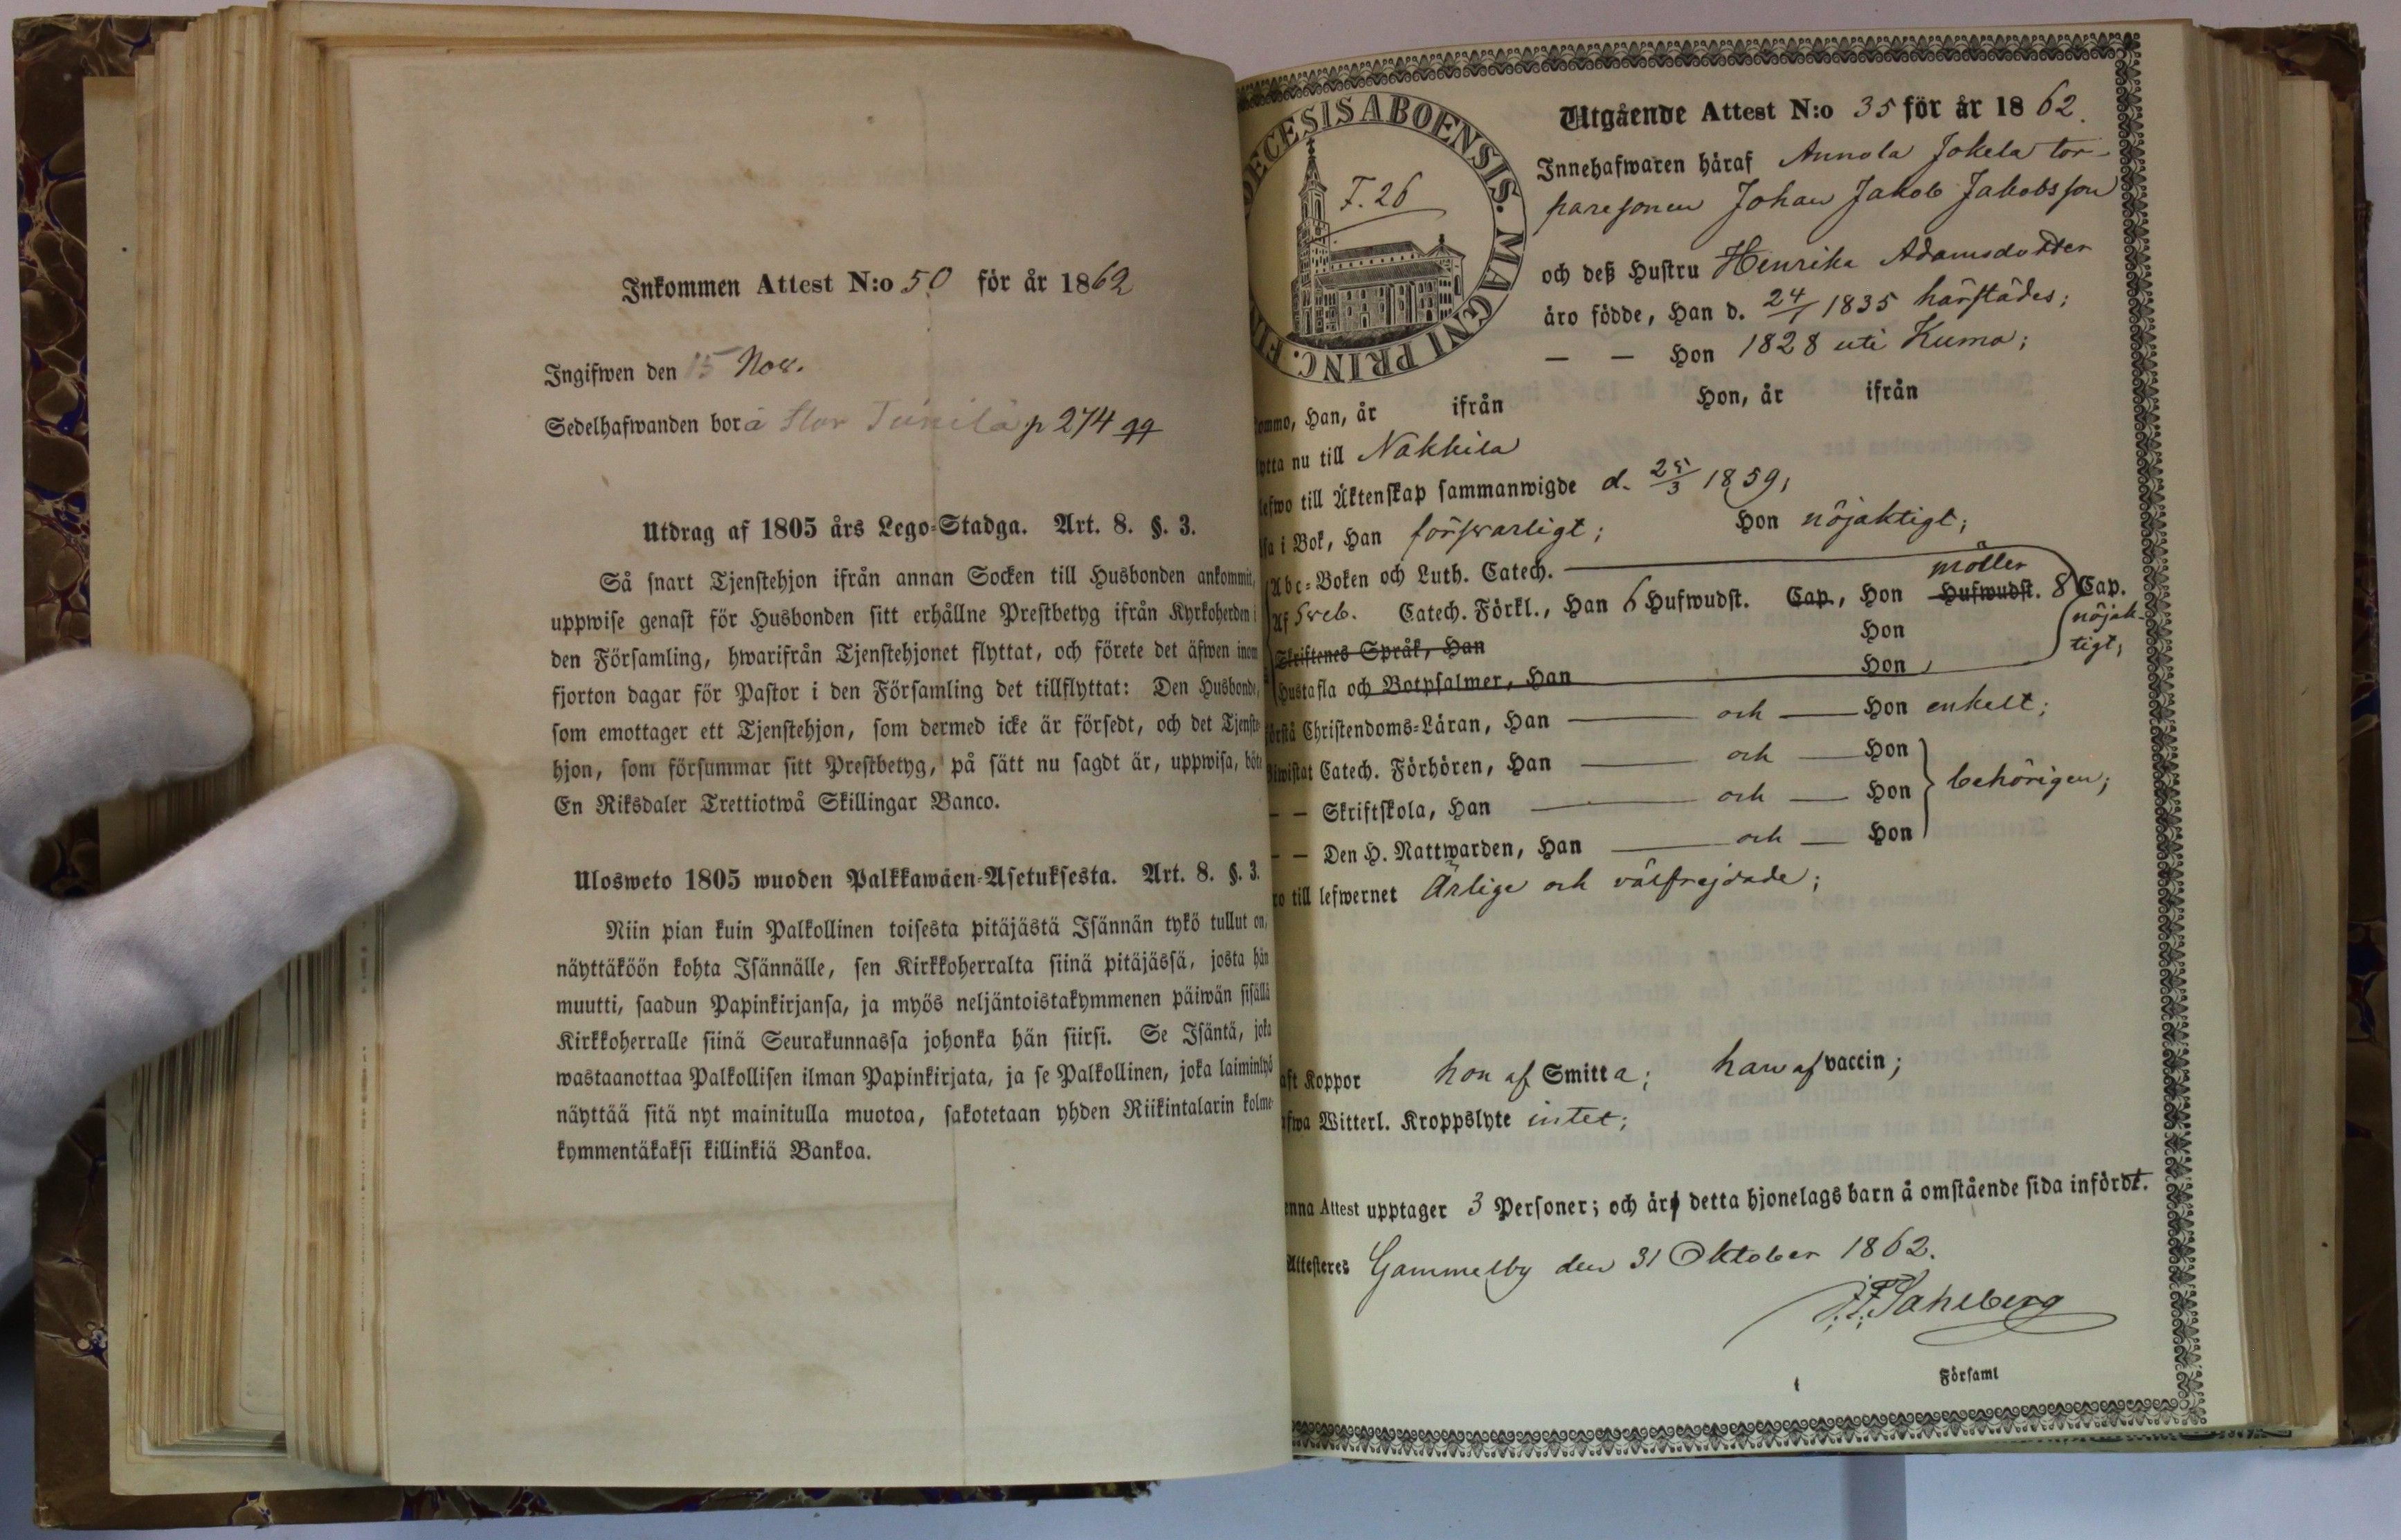 Inkommen Attest N:o 50 för år 1862
Ingifwen den 15 Nov.
Sedelhafwanden bor å Stor Tunila p 274
Utdrag af 1805 års Lego-Stadga. Art. 8. §. 3.
Så snart Tjenstehjon ifrån annan Socken till Husbonden ankommit,
uppwise genast för Husbonden sitt erhållne Prestbetyg ifrån Kyrkoherden i
den Församling, hwarifrån Tjenstehjonet flyttat, och förete det äfwen inom
fjorton dagar för Pastor i den Församling det tillflyttat: Den Husbonde,
som emottager ett Tjenstehjon, som dermed icke är försedt, och det Tjenste-
hjon, som försummar sitt Prestbetyg, på sätt nu sagdt är, uppwisa, böte
En Riksdaler Trettiotwå Skillingar Banco.
Ulosweto 1805 wuoden Palkkawäen-Asetuksesta. Art. 8. §. 3.
Niin pian kuin Palkollinen toisesta pitäjästä Isännän tykö tullut on,
näyttäköön kohta Isännälle, sen Kirkkoherralta siinä pitäjässä, josta hän
muutti, saadun Papinkirjansa, ja myös neljäntoistakymmenen päiwän sisällä
Kirkkoherralle siinä Seurakunnassa johonka hän siirsi. Se Isäntä, joka
wastaanottaa Palkollisen ilman Papinkirjata, ja se Palkollinen, joka laiminlyö
näyttää sitä nyt mainitulla muotoa, sakotetaan yhden Riikintalarin kolme-
kymmentäkaksi killinkiä Bankoa.
DECESIS ABOENSIS. MAGNI PRINC. FIN
F. 26
Utgående Attest N:o 35 för år 1862.
Innehafwaren häraf Annola Jokela tor-
paresonen Johan Jakob Jakobsson
och deß Hustru Henrika Adamsdotter
äro födde, Han d. 24/1 1835 härstädes;
— — Hon 1828 uti Kumo;
ommo, Han, år ifrån Hon, år ifrån
ytta nu till Nakkila
lefwo till Äktenskap sammanwigde d. 25/3 1859;
sa i Bok, Han förswarligt; Hon nöjaktigt;
Abc-Boken och Luth. Catech.
Af Sveb. Catech. Förkl., Han 6 Hufwudst. Cap., Hon Hufwudst. 8 Cap.
nöjak-
tigt;
Skriftenes Språk, Han Hon
Hustafla och Botpsalmer, Han Hon
örstå Christendoms-Läran, Han — och — Hon enkelt;
iwistat Catech. Förhören, Han — och — Hon
behörigen;
— — Skriftskola, Han — och — Hon
— — Den H. Nattwarden, Han — och — Hon
ro till lefwernet Ärlige och välfrejdade;
aft Koppor hon af Smitta; han af vaccin;
afwa Witterl. Kroppslyte intet;
enna Attest upptager 3 Personer; och äro detta hjonelags barn å omstående sida infördt.
Attesteres Gammelby den 31 Oktober 1862.
J. F. Sahlberg
Församl